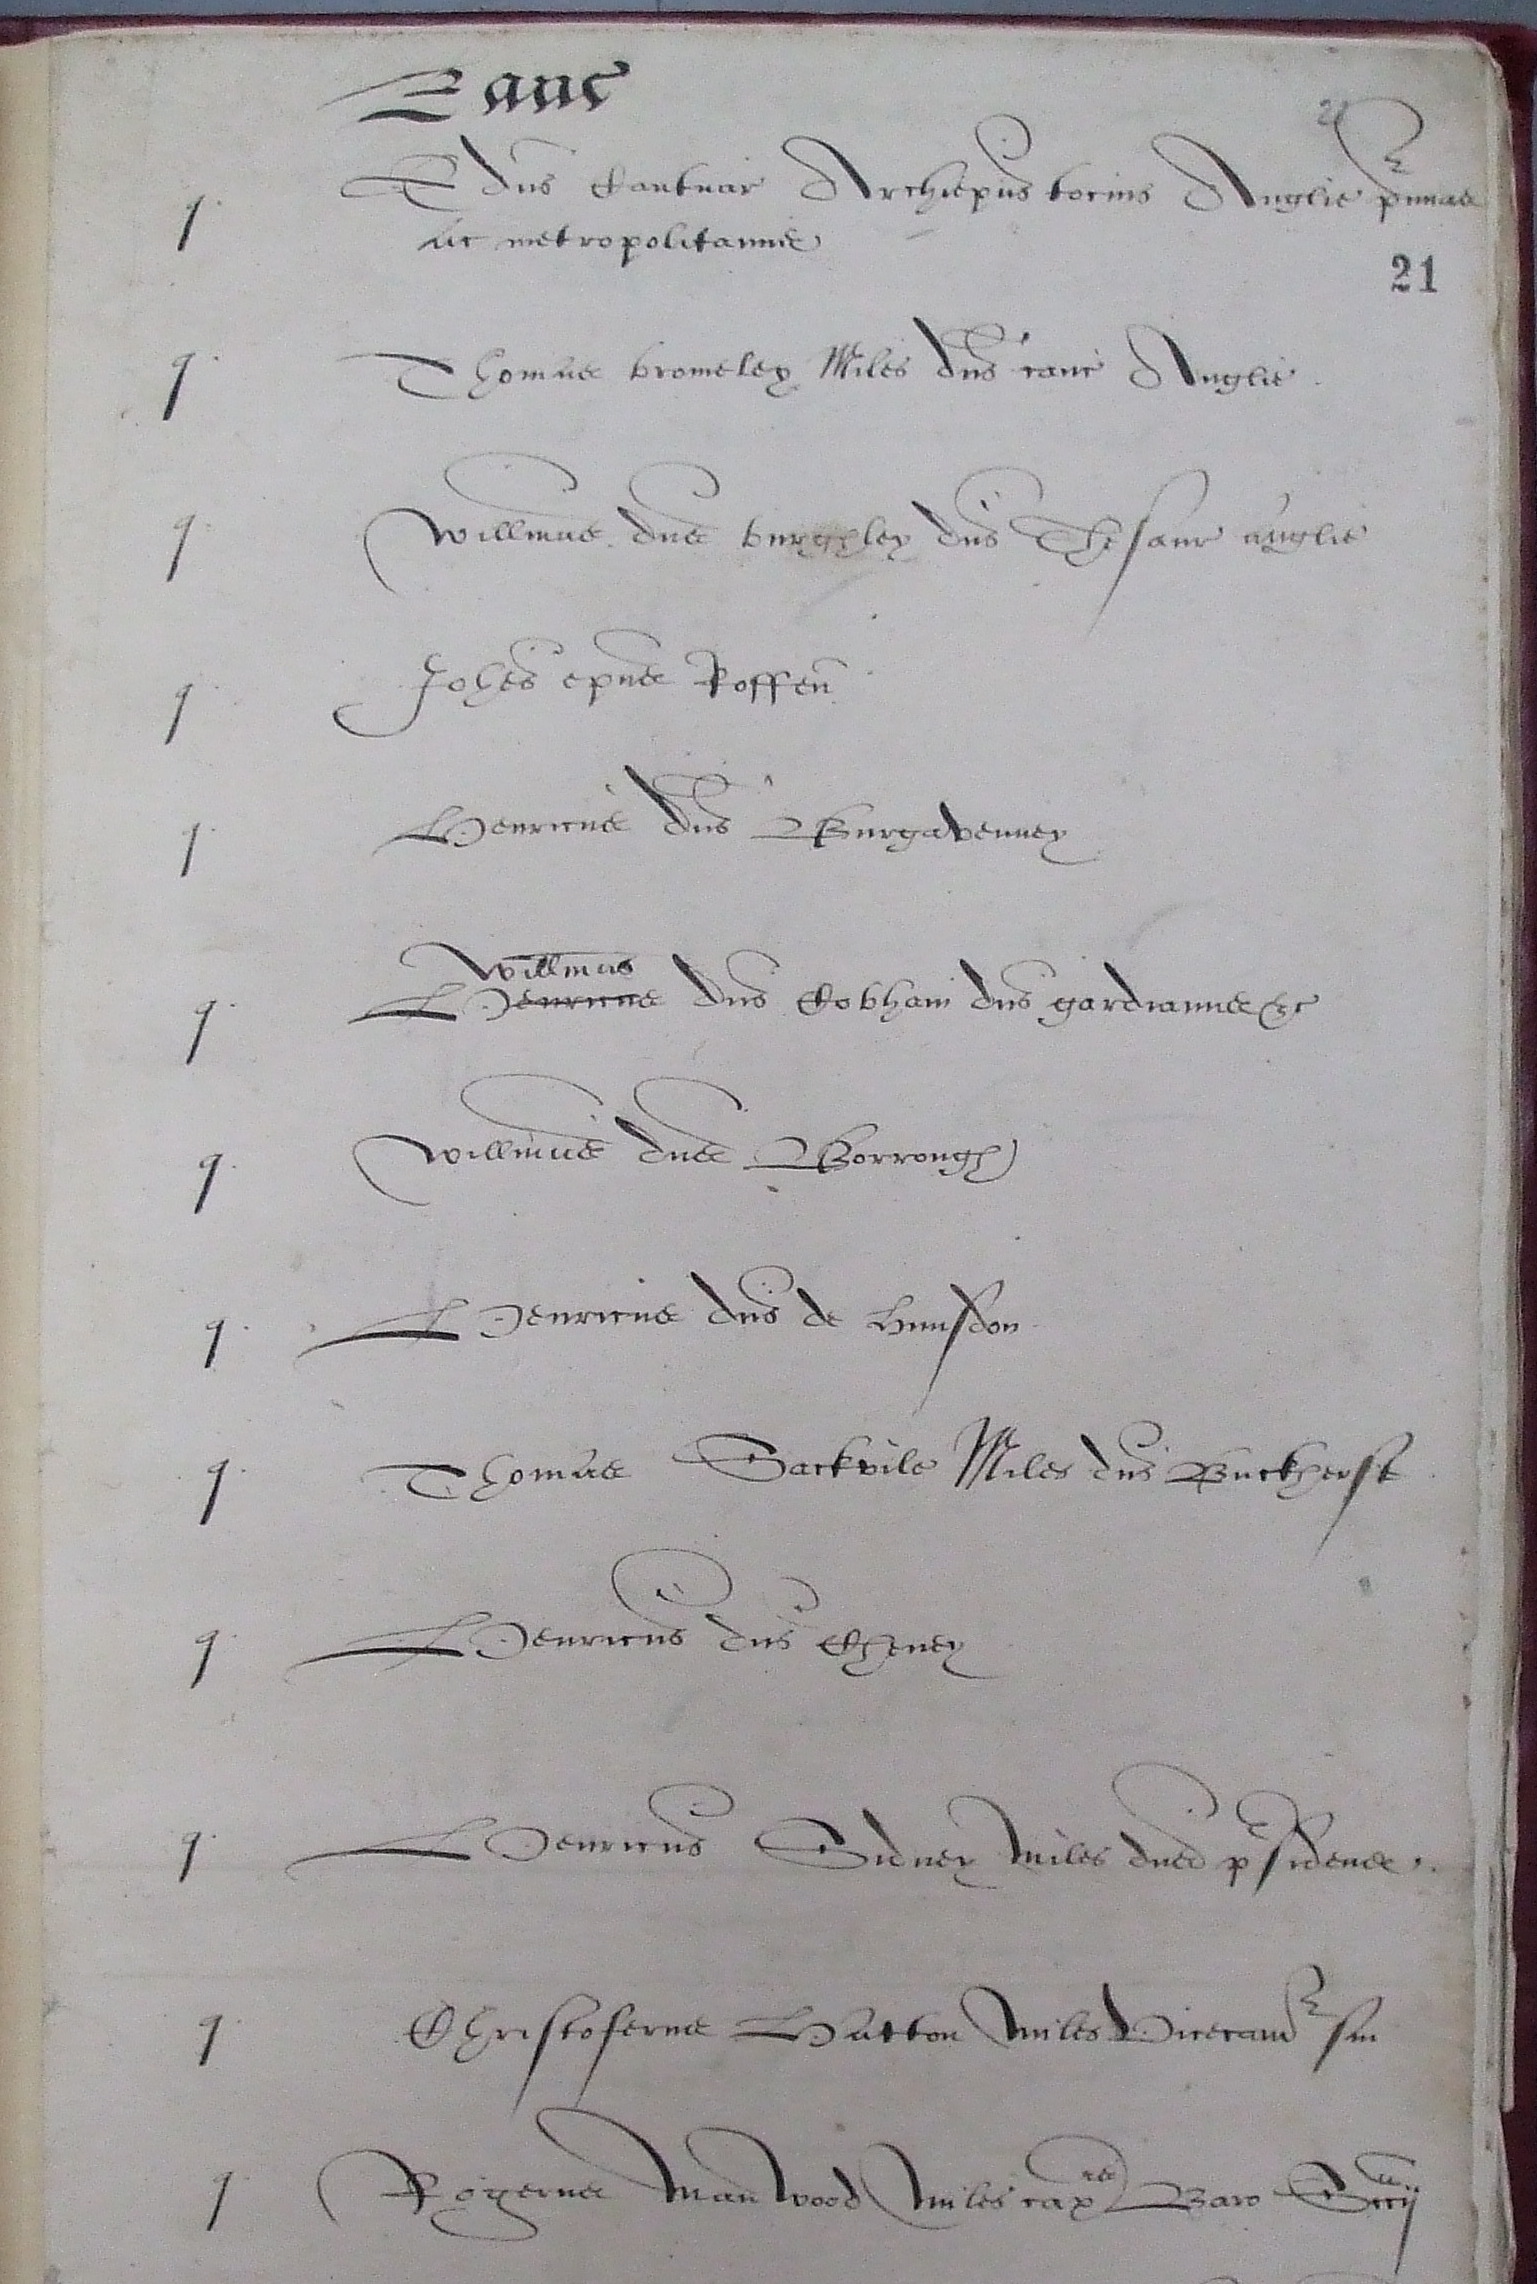 Canc
E dns Cantuar Archiepus tocius Anglie primas
21
q ac metropolitanus
21
q Thomas Bromeley Miles dns canc Anglie
q Willmus dns Burghley dns Thesaur Anglie
q Johes epus Roffen
q Henricus dns Burgavenney
Willmus
q Henricus dns Cobham dns gardianus &c
q Willmus dns Borrough
q Henricus dns de Hunsdon
q Thomas Sackvile Miles dns Buckherst
q Henricus dns Cheney
q Henricus Sidney miles dns psidens
q Christoferus Hatton miles Vicecam
q Rogerus Manwood miles cap Baro Sccij